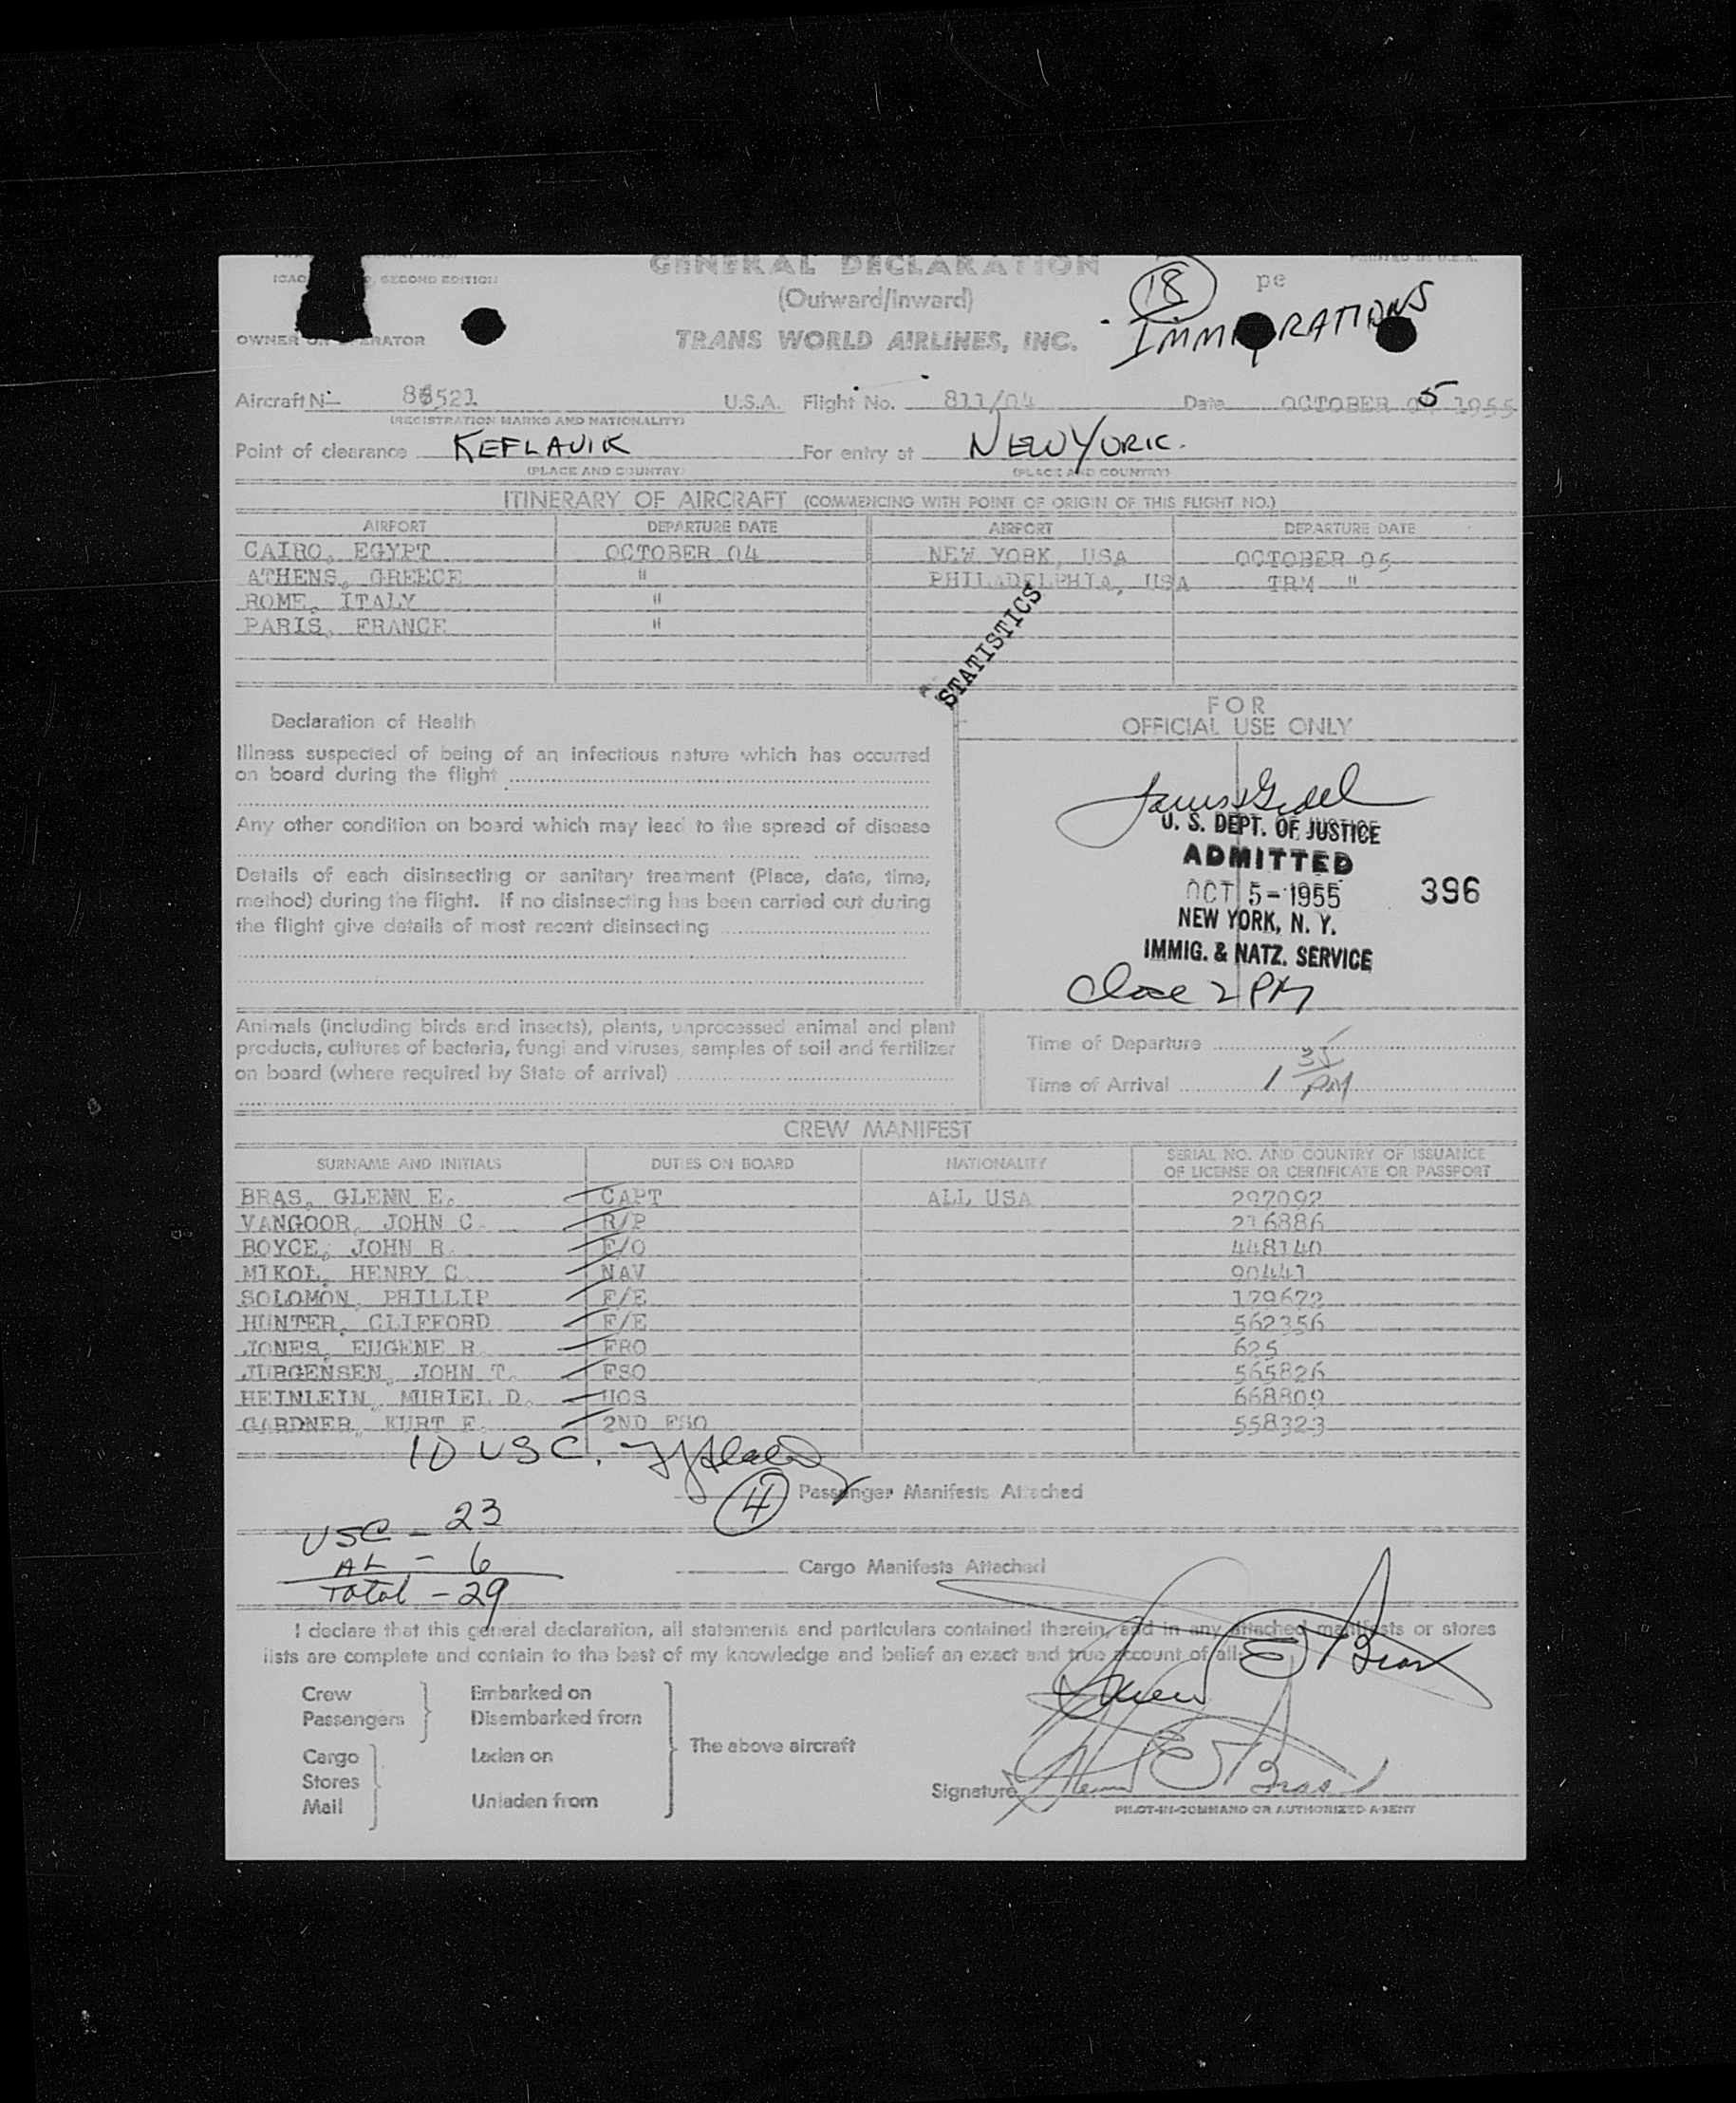 GENERAL DECLARATION
(Outward/Inward)
TRANS WORLD AIRLINES, INC.
SECOND EDITION
18
pe
IMMIGRATIONS
OWNER OR OPERATOR
Aircraft No 521 U.S.A. Flight No. 811/04 Date OCTOBER 05 1955
(REGISTRATION MARKS AND NATIONALITY)
Point of clearance KEFLAVIK For entry at NEW YORK.
(PLACE AND COUNTRY) (PLACE AND COUNTRY)
ITINERARY OF AIRCRAFT (COMMENCING WITH POINT OF ORIGIN OF THIS FLIGHT NO.)
AIRPORT DEPARTURE DATE AIRPORT DEPARTURE DATE
CAIRO, EGYPT OCTOBER 04 NEW YORK, USA OCTOBER 05
ATHENS, GREECE " PHILADELPHIA, USA TRM "
ROME, ITALY "
PARIS, FRANCE "
STATISTICS
Declaration of Health
Illness suspected of being of an infectious nature which has occurred
on board during the flight
Any other condition on board which may lead to the spread of disease
Details of each disinsecting or sanitary treatment (Place, date, time,
method) during the flight. If no disinsecting has been carried out during
the flight give details of most recent disinsecting
FOR
OFFICIAL USE ONLY
U. S. DEPT. OF JUSTICE
ADMITTED
OCT 5-1955 396
NEW YORK, N. Y.
IMMIG. & NATZ. SERVICE
Close 2 PM
Animals (including birds and insects), plants, unprocessed animal and plant
products, cultures of bacteria, fungi and viruses, samples of soil and fertilizer
on board (where required by State of arrival)
Time of Departure
Time of Arrival 1 35 PM
CREW MANIFEST
SURNAME AND INITIALS DUTIES ON BOARD NATIONALITY SERIAL NO. AND COUNTRY OF ISSUANCE OF LICENSE OR CERTIFICATE OR PASSPORT
BRAS, GLENN E. CAPT ALL USA 297092
VANGOOR, JOHN C. R/P 216886
BOYCE, JOHN R. F/O 448140
MIKOL, HENRY C. NAV 90441
SOLOMON, PHILLIP F/E 179672
HUNTER, CLIFFORD F/E 562356
JONES, EUGENE R. FRO 625
JURGENSEN, JOHN T. FSO 565826
HEINLEIN, MURIEL D. HOS 668809
GARDNER, KURT F. 2ND FSO 558323
10 USC.
4 Passenger Manifests Attached
USC - 23
AL - 6
Total - 29
Cargo Manifests Attached
I declare that this general declaration, all statements and particulars contained therein, and in any attached manifests or stores
lists are complete and contain to the best of my knowledge and belief an exact and true account of all:
Crew Embarked on
Passengers Disembarked from
Cargo Laden on The above aircraft
Stores
Mail Unladen from
Signature
PILOT-IN-COMMAND OR AUTHORIZED AGENT